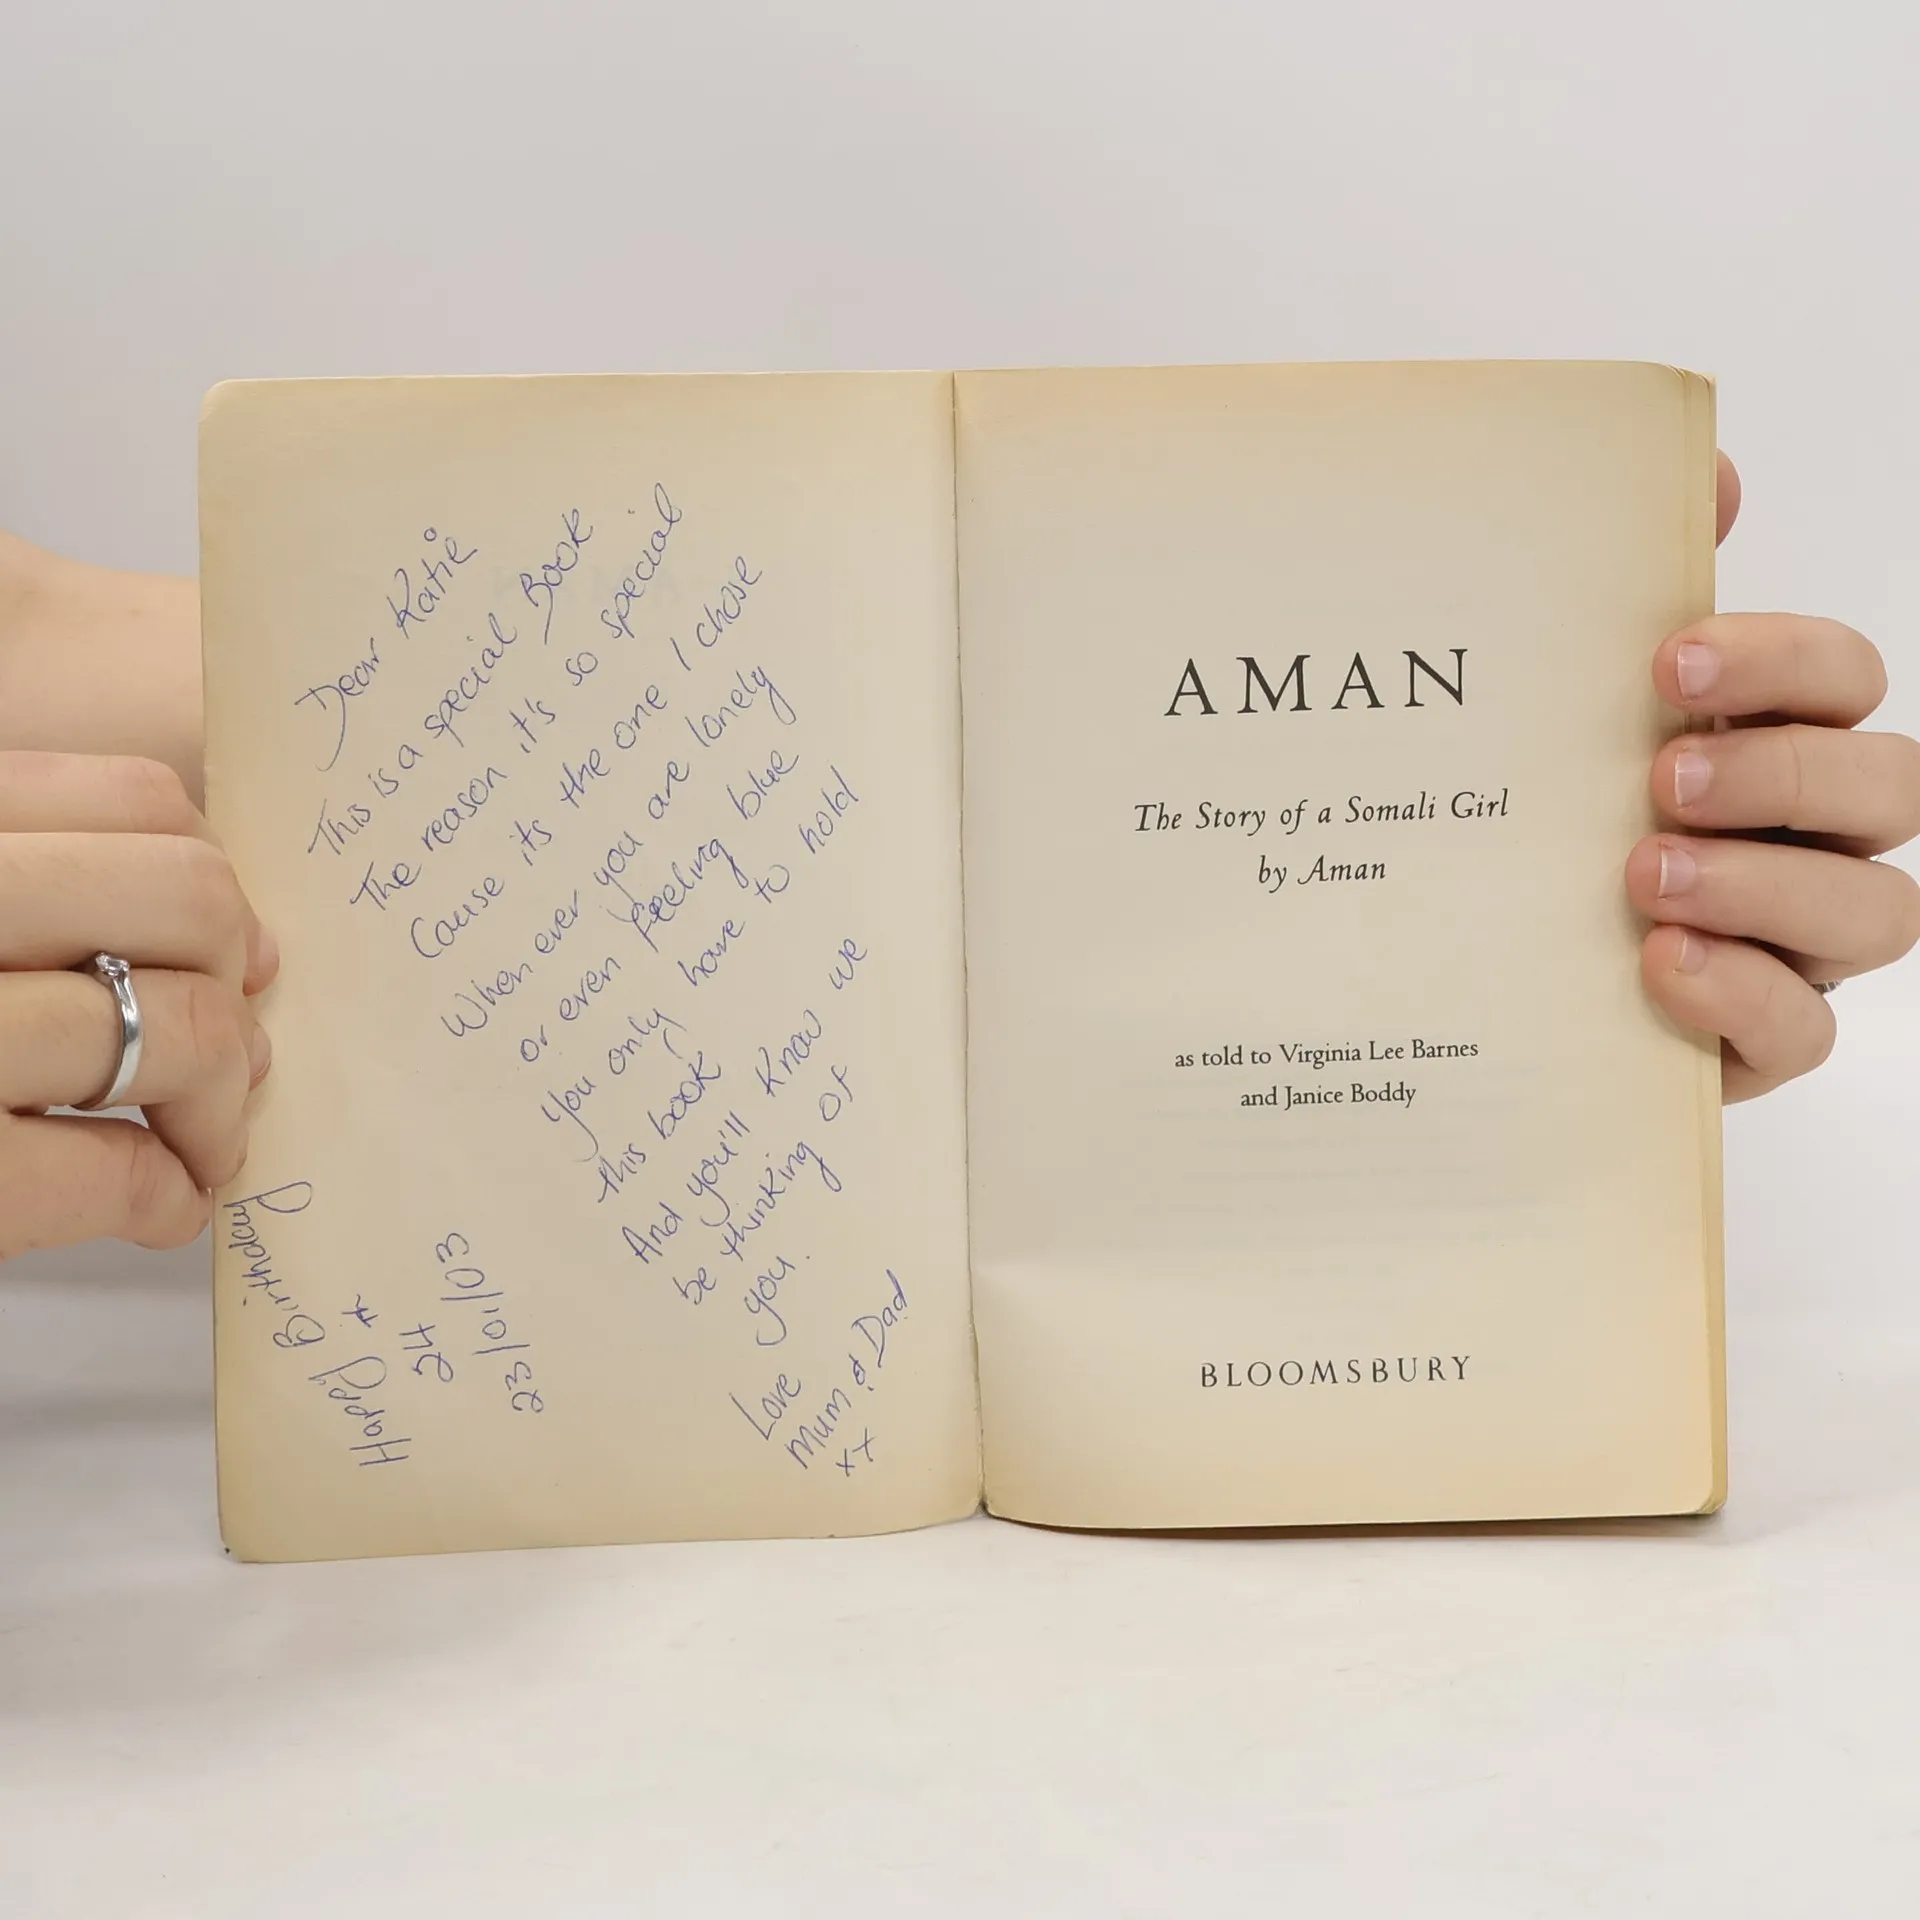 Dear Katie
This is a special Book
The reason it's so special
Cause its the one I chose
When ever you are lonely
or even feeling blue
You only have to hold
this book
And you'll know we
be thinking of
you.
Love
Mum & Dad
xx
Happy Birthday
24th
23/01/03
AMAN
The Story of a Somali Girl
by Aman
as told to Virginia Lee Barnes
and Janice Boddy
BLOOMSBURY